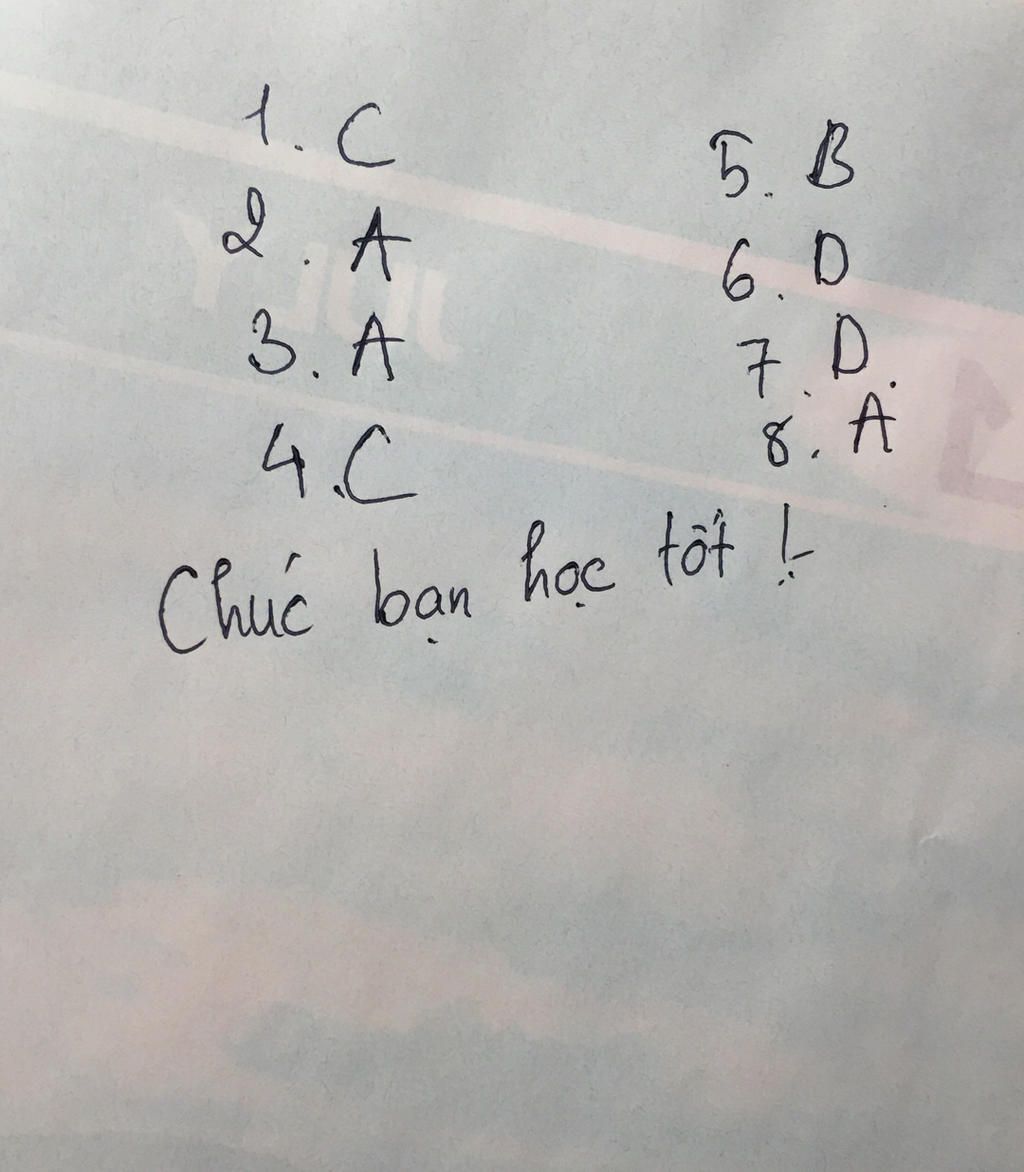 1. C
2. A
3. A
4. C
5. B
6. D
7. D.
8. A
Chúc bạn học tốt !
JULY
1